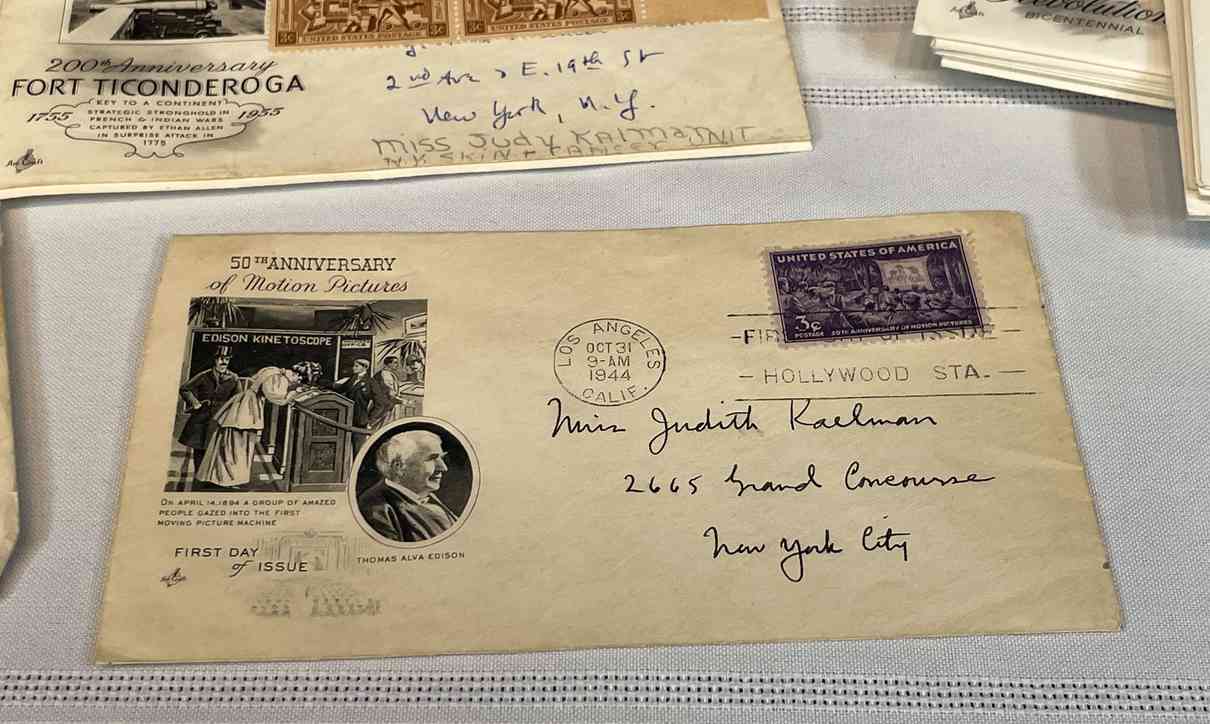 3c UNITED STATES POSTAGE 3c
3c UNITED STATES POSTAGE 3c
200th Anniversary
FORT TICONDEROGA
1755
KEY TO A CONTINENT
STRATEGIC STRONGHOLD IN
FRENCH & INDIAN WARS
CAPTURED BY ETHAN ALLEN
IN SURPRISE ATTACK IN
1775
1955
ArtCraft
2nd Ave & E. 19th St
New York, N.Y.
Miss Judy Kalman
N.Y. SKIN + CANCER UNIT
ArtCraft
Revolution
BICENTENNIAL
50TH ANNIVERSARY
of Motion Pictures
EDISON KINETOSCOPE
ON APRIL 14, 1894 A GROUP OF AMAZED
PEOPLE GAZED INTO THE FIRST
MOVING PICTURE MACHINE
THOMAS ALVA EDISON
FIRST DAY
of ISSUE
ArtCraft
LOS ANGELES
OCT 31
9-AM
1944
CALIF.
UNITED STATES OF AMERICA
3c
POSTAGE 50TH ANNIVERSARY OF MOTION PICTURES
– FIRST DAY OF ISSUE –
– HOLLYWOOD STA. –
Miss Judith Kaelman
2665 Grand Concourse
New York City